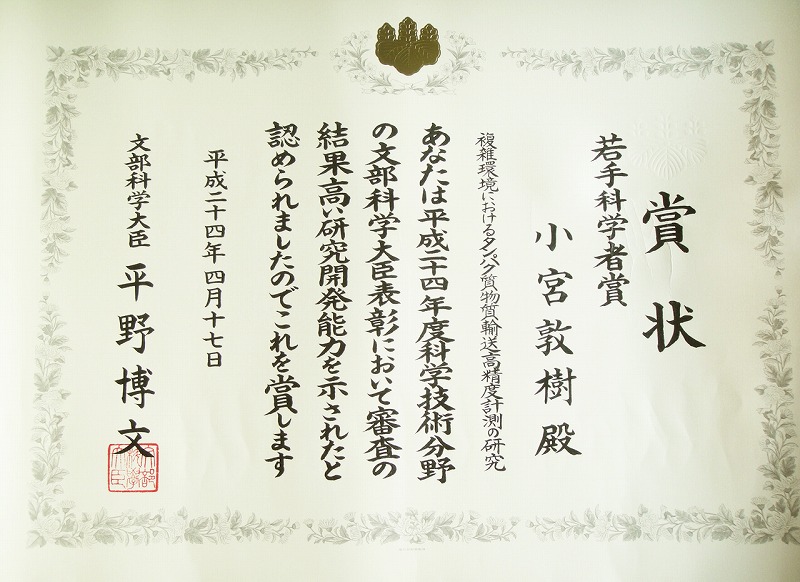 賞状
若手科学者賞
小宮敦樹殿
複雑環境におけるタンパク質物質輸送高精度計測の研究
あなたは平成二十四年度科学技術分野
の文部科学大臣表彰において審査の
結果高い研究開発能力を示されたと
認められましたのでこれを賞します
平成二十四年四月十七日
文部科学大臣 平野博文